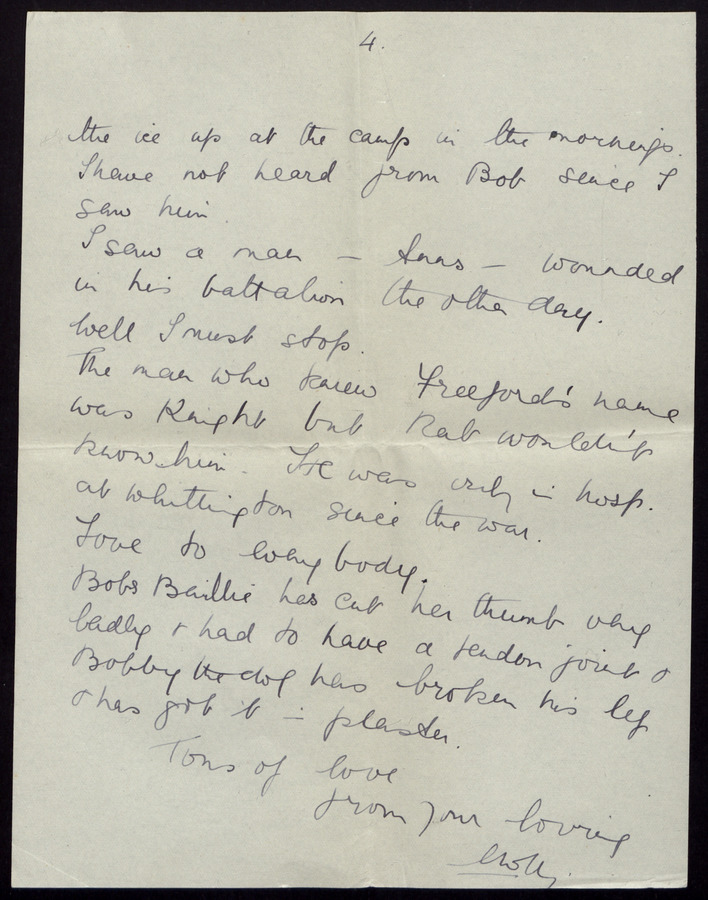 4.
the ice up at the camp in the mornings.
I have not heard from Bob since I
saw him.
I saw a man – – wounded
in his battalion the other day.
Well I must stop.
The man who knew Freeford's name
was Knight but Rab wouldn't
know him. He was only in hosp.
at Whittington since the war.
Love to everybody.
Bobs Baillie has cut her thumb very
badly & had to have a tendon joint &
Bobby the dog has broken his leg
& has got it in plaster.
Tons of love
from your loving